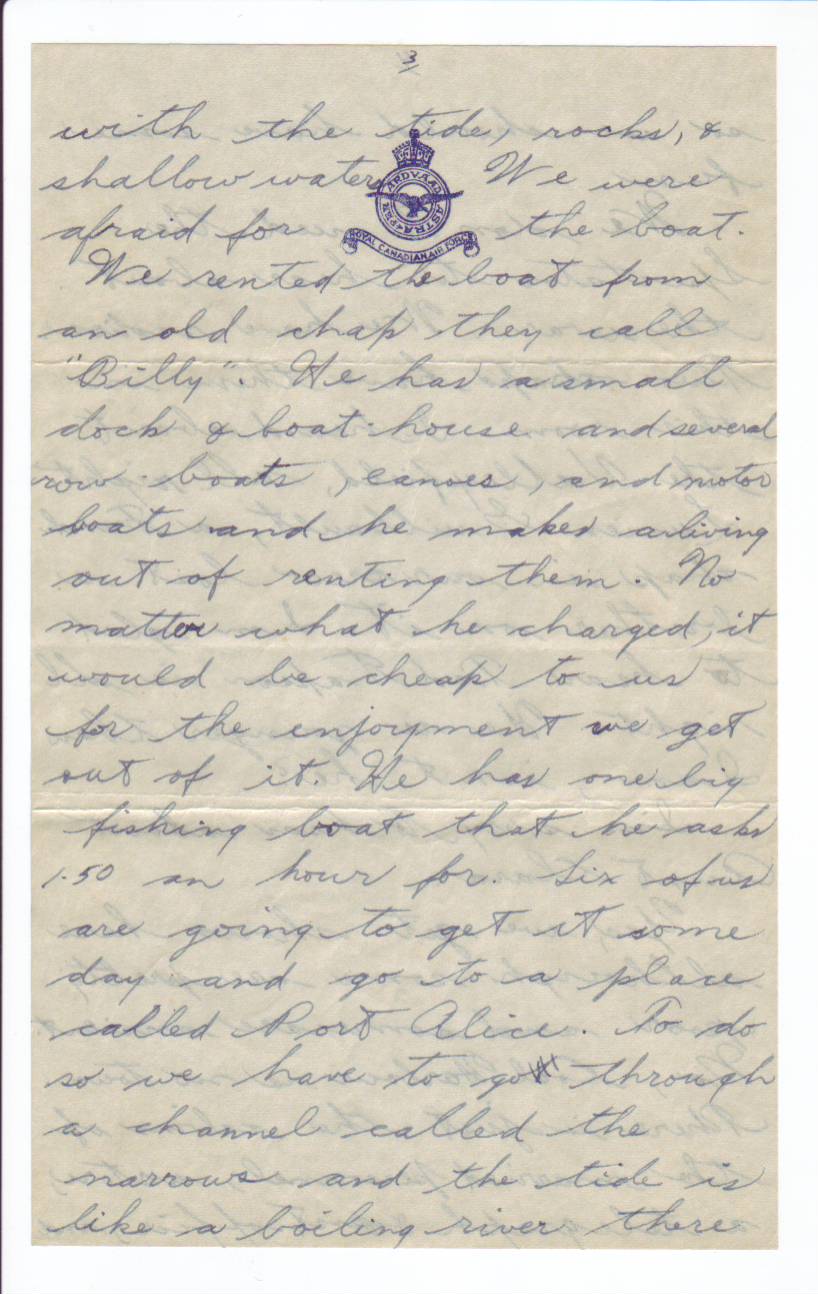 3
with the tide, rocks, &
shallow water. We were
PER ARDVA AD ASTRA
ROYAL CANADIAN AIR FORCE
afraid for the boat.
We rented the boat from
an old chap they call
"Billy". He has a small
dock & boat-house and several
row-boats, canoes, and motor
boats and he makes a living
out of renting them. No
matter what he charged, it
would be cheap to us
for the enjoyment we get
out of it. He has one big
fishing boat that he asks
1.50 an hour for. Six of us
are going to get it some
day and go to a place
called Port Alice. To do
so we have to go through
a channel called the
narrows and the tide is
like a boiling river there